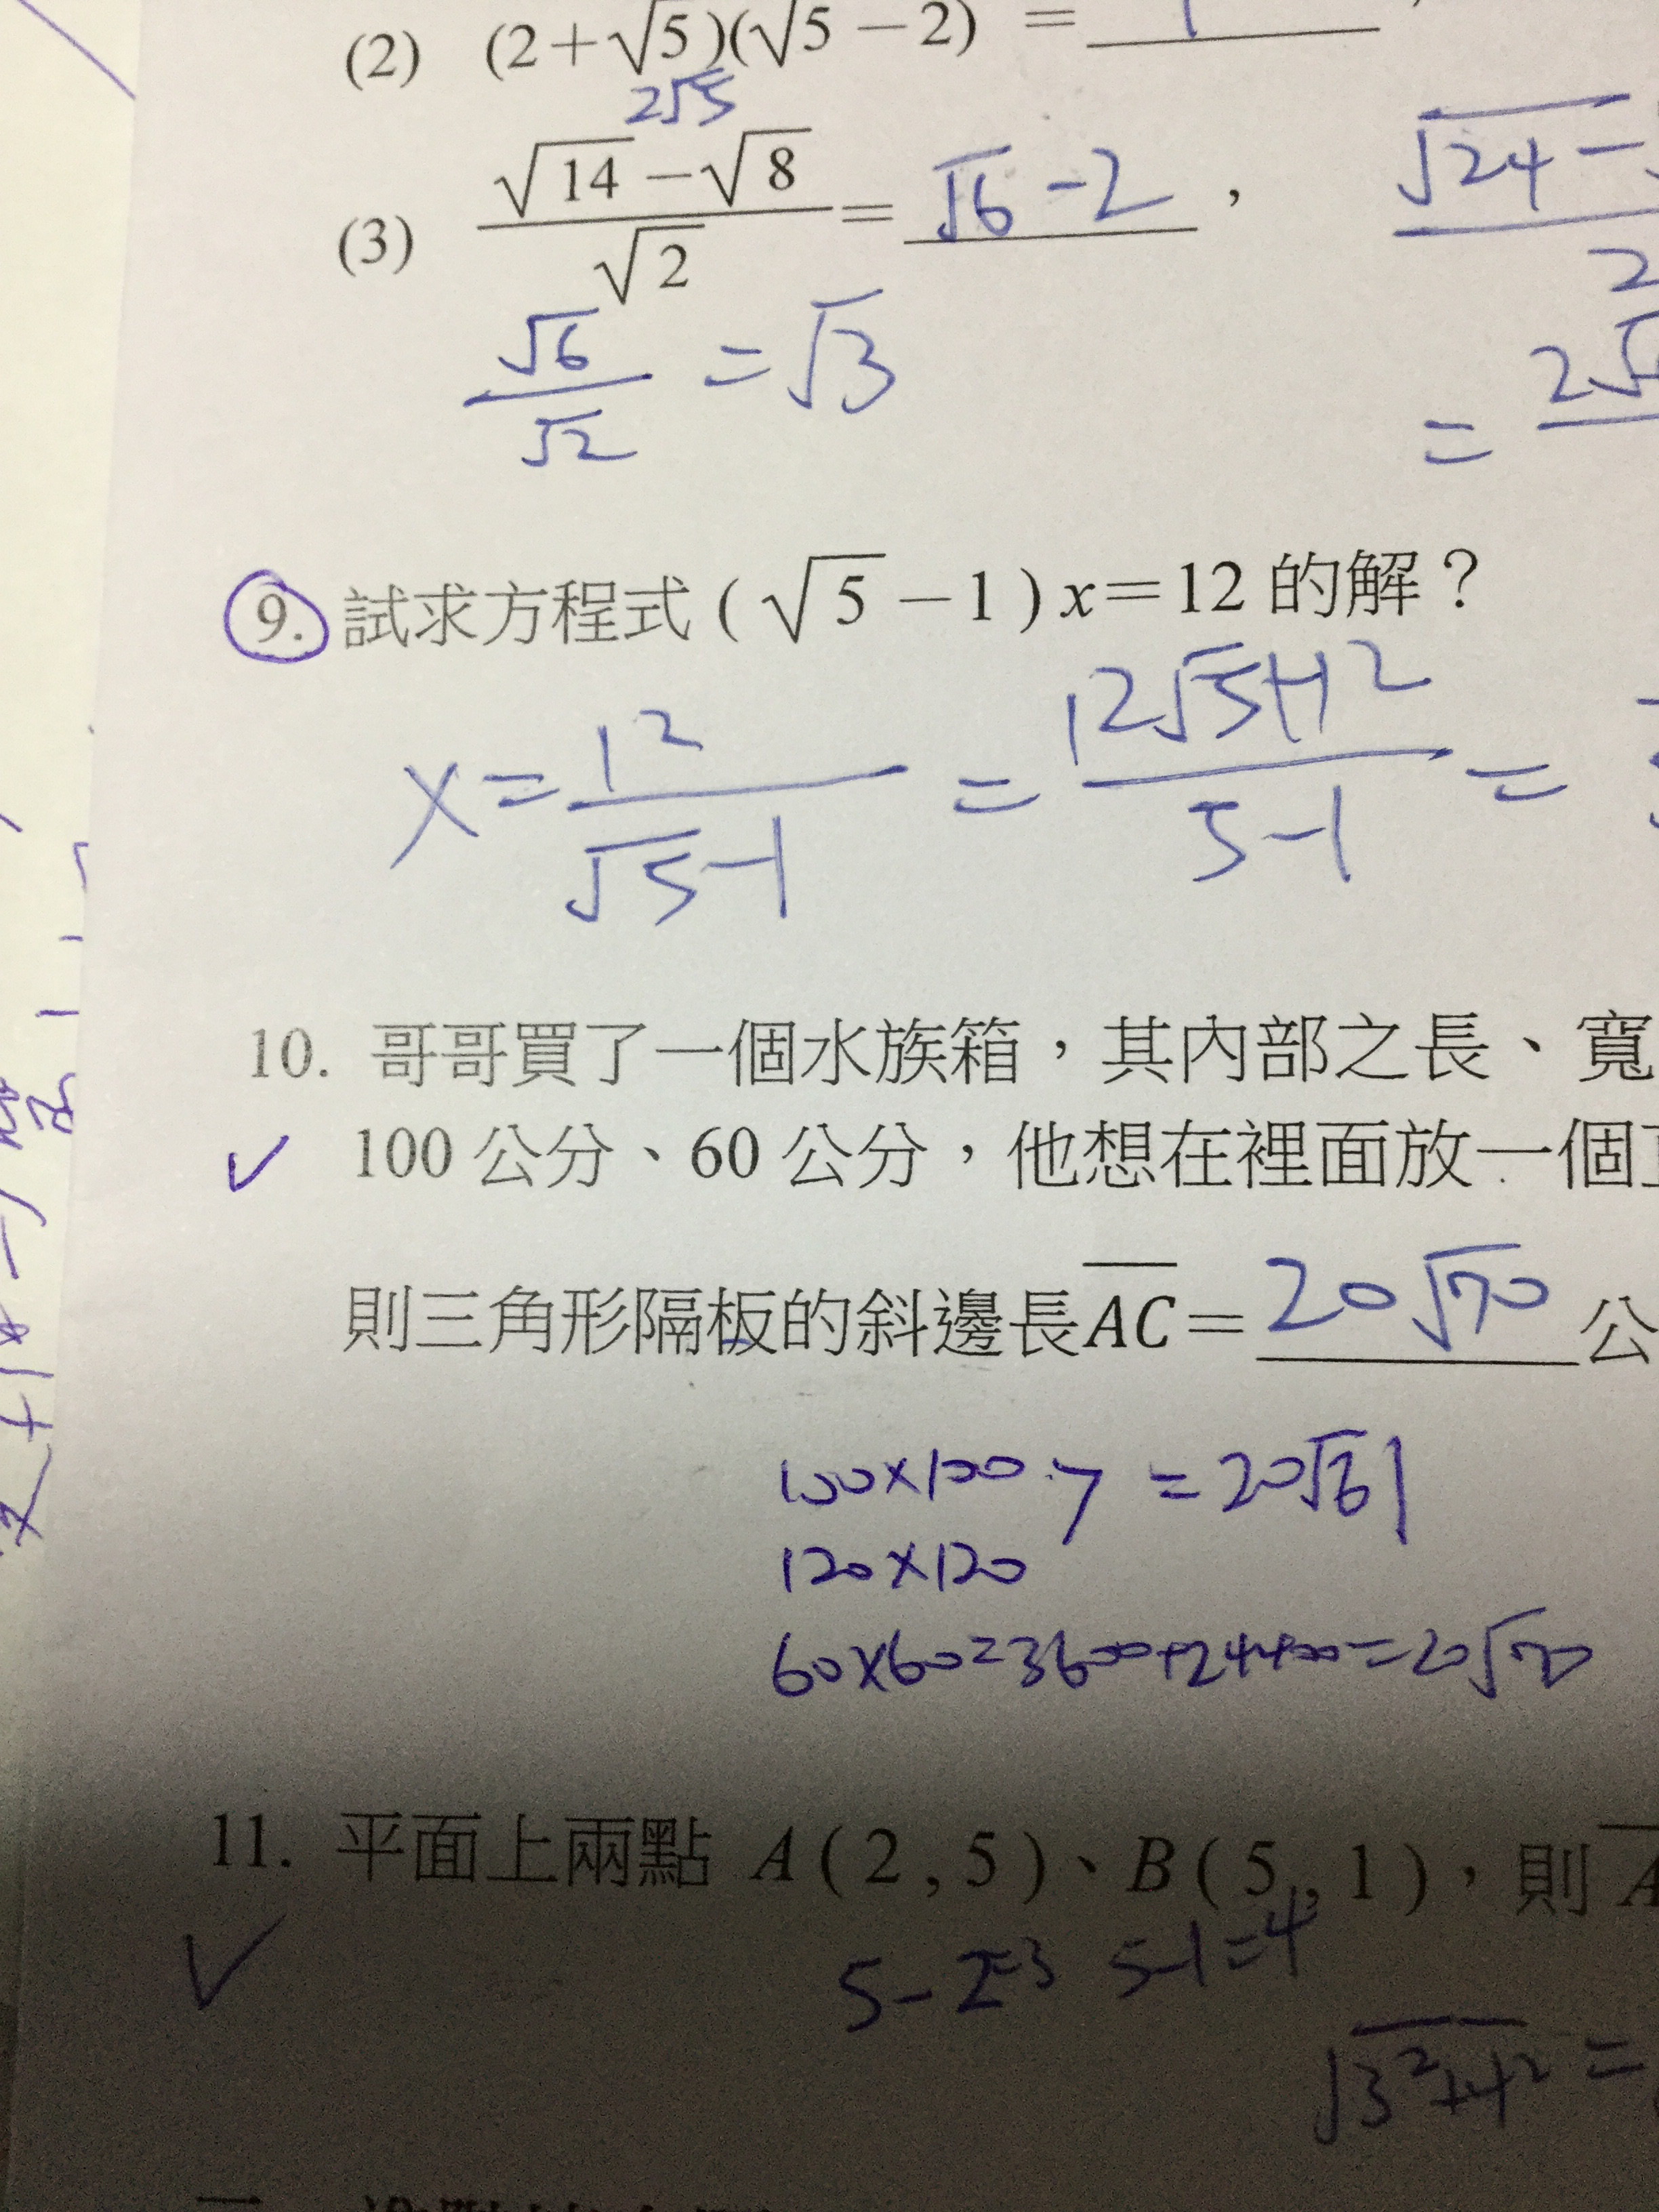 (2) (2+√5)(√5−2) =
2√5
(3) (√14−√8)/√2 = √6-2 ， √24-
2
√6/√2 = √3
=
9. 試求方程式 ( √5 −1 ) x=12 的解？
x = 12/(√5-1) = (12√5+12)/(5-1) =
10. 哥哥買了一個水族箱，其內部之長、寬
100 公分、60 公分，他想在裡面放一個
則三角形隔板的斜邊長AC= 20√70 公
100×100 = 20√61
120×120
60×60=3600+24400=20√70
11. 平面上兩點 A ( 2 , 5 )、B ( 5 , 1 )，則
5-2=3 5-1=4
√3²+4² =